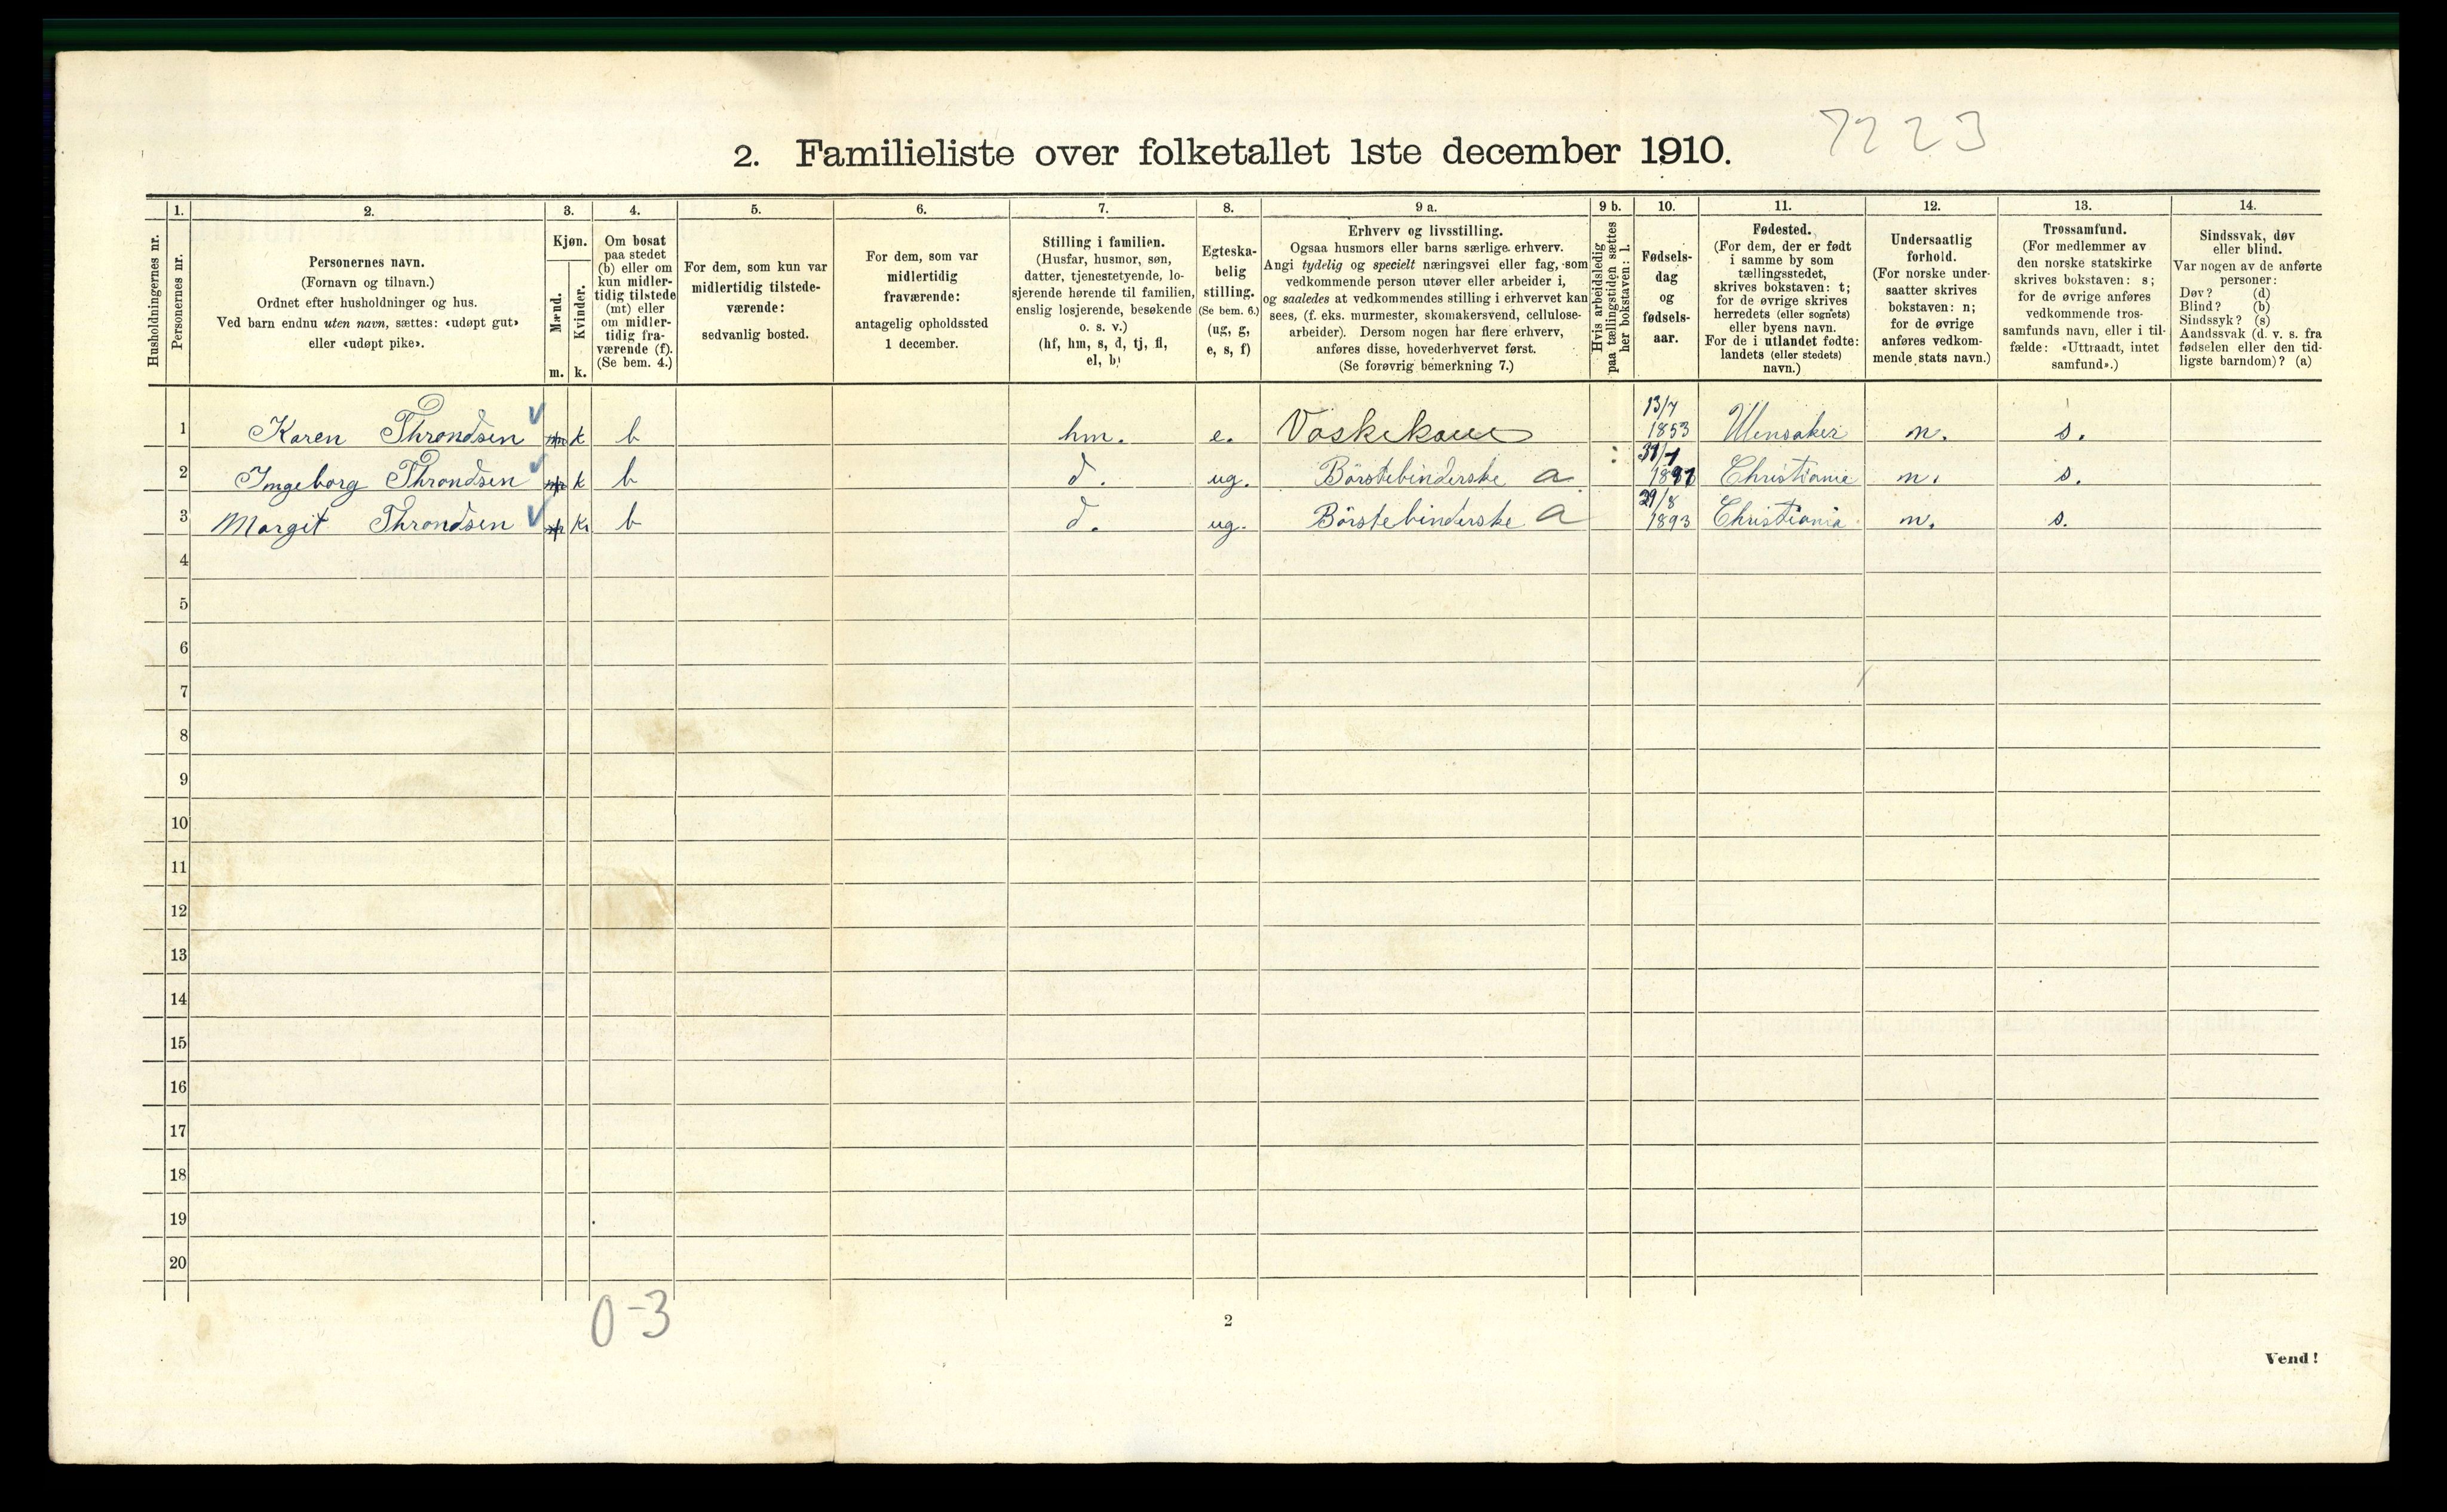 7223
2. Familieliste over folketallet 1ste december 1910.
Husholdningernes nr.
1.
Personernes nr.
2.
Personernes navn.
(Fornavn og tilnavn.)
Ordnet efter husholdninger og hus.
Ved barn endnu uten navn, sættes: «udøpt gut»
eller «udøpt pike».
3.
Kjøn.
Mænd.
Kvinder.
m. k.
4.
Om bosat
paa stedet
(b) eller om
kun midler-
tidig tilstede
(mt) eller
om midler-
tidig fra-
værende (f).
(Se bem. 4.)
5.
For dem, som kun var
midlertidig tilstede-
værende:
sedvanlig bosted.
6.
For dem, som var
midlertidig
fraværende:
antagelig opholdssted
1 december.
7.
Stilling i familien.
(Husfar, husmor, søn,
datter, tjenestetyende, lo-
sjerende hørende til familien,
enslig losjerende, besøkende
o. s. v.)
(hf, hm, s, d, tj, fl,
el, b)
8.
Egteska-
belig
stilling.
(Se bem. 6.)
(ug, g,
e, s, f)
9 a.
Erhverv og livsstilling.
Ogsaa husmors eller barns særlige erhverv.
Angi tydelig og specielt næringsvei eller fag, som
vedkommende person utøver eller arbeider i,
og saaledes at vedkommendes stilling i erhvervet kan
sees, (f. eks. murmester, skomakersvend, cellulose-
arbeider). Dersom nogen har flere erhverv,
anføres disse, hovederhvervet først.
(Se forøvrig bemerkning 7.)
9 b.
Hvis arbeidsledig
paa tællingstiden sættes
her bokstaven: l.
10.
Fødsels-
dag
og
fødsels-
aar.
11.
Fødested.
(For dem, der er født
i samme by som
tællingsstedet,
skrives bokstaven: t;
for de øvrige skrives
herredets (eller sognets)
eller byens navn.
For de i utlandet fødte:
landets (eller stedets)
navn.)
12.
Undersaatlig
forhold.
(For norske under-
saatter skrives
bokstaven: n;
for de øvrige
anføres vedkom-
mende stats navn.)
13.
Trossamfund.
(For medlemmer av
den norske statskirke
skrives bokstaven: s;
for de øvrige anføres
vedkommende tros-
samfunds navn, eller i til-
fælde: «Uttraadt, intet
samfund».)
14.
Sindssvak, døv
eller blind.
Var nogen av de anførte
personer:
Døv? (d)
Blind? (b)
Sindssyk? (s)
Aandssvak (d. v. s. fra
fødselen eller den tid-
ligste barndom)? (a)
1 Karen Throndsen k b hm. e. Vaskekone 13/7 1853 Ulensaker n. s.
2 Ingeborg Throndsen k b d. ug. Börstebinderske a Christiania n. s.
3 Margit Throndsen k. b d. ug. Börstebinderske a 29/8 1893 Christiania n. s.
4
5
6
7
8
9
10
11
12
13
14
15
16
17
18
19
20
0-3
2
Vend!